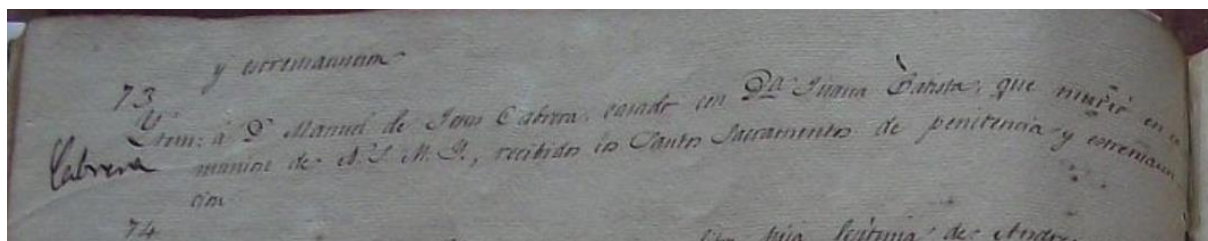 y estremauncion
73
Ytem: á Dn Manuel de Jesus Cabrera, casado con Da. Juana Batista, que murió en co
Cabrera
munion de N. S. M. Y., recibidos los Santos Sacramentos de penitencia y estremaun
cion
74
hija legitima de Andres